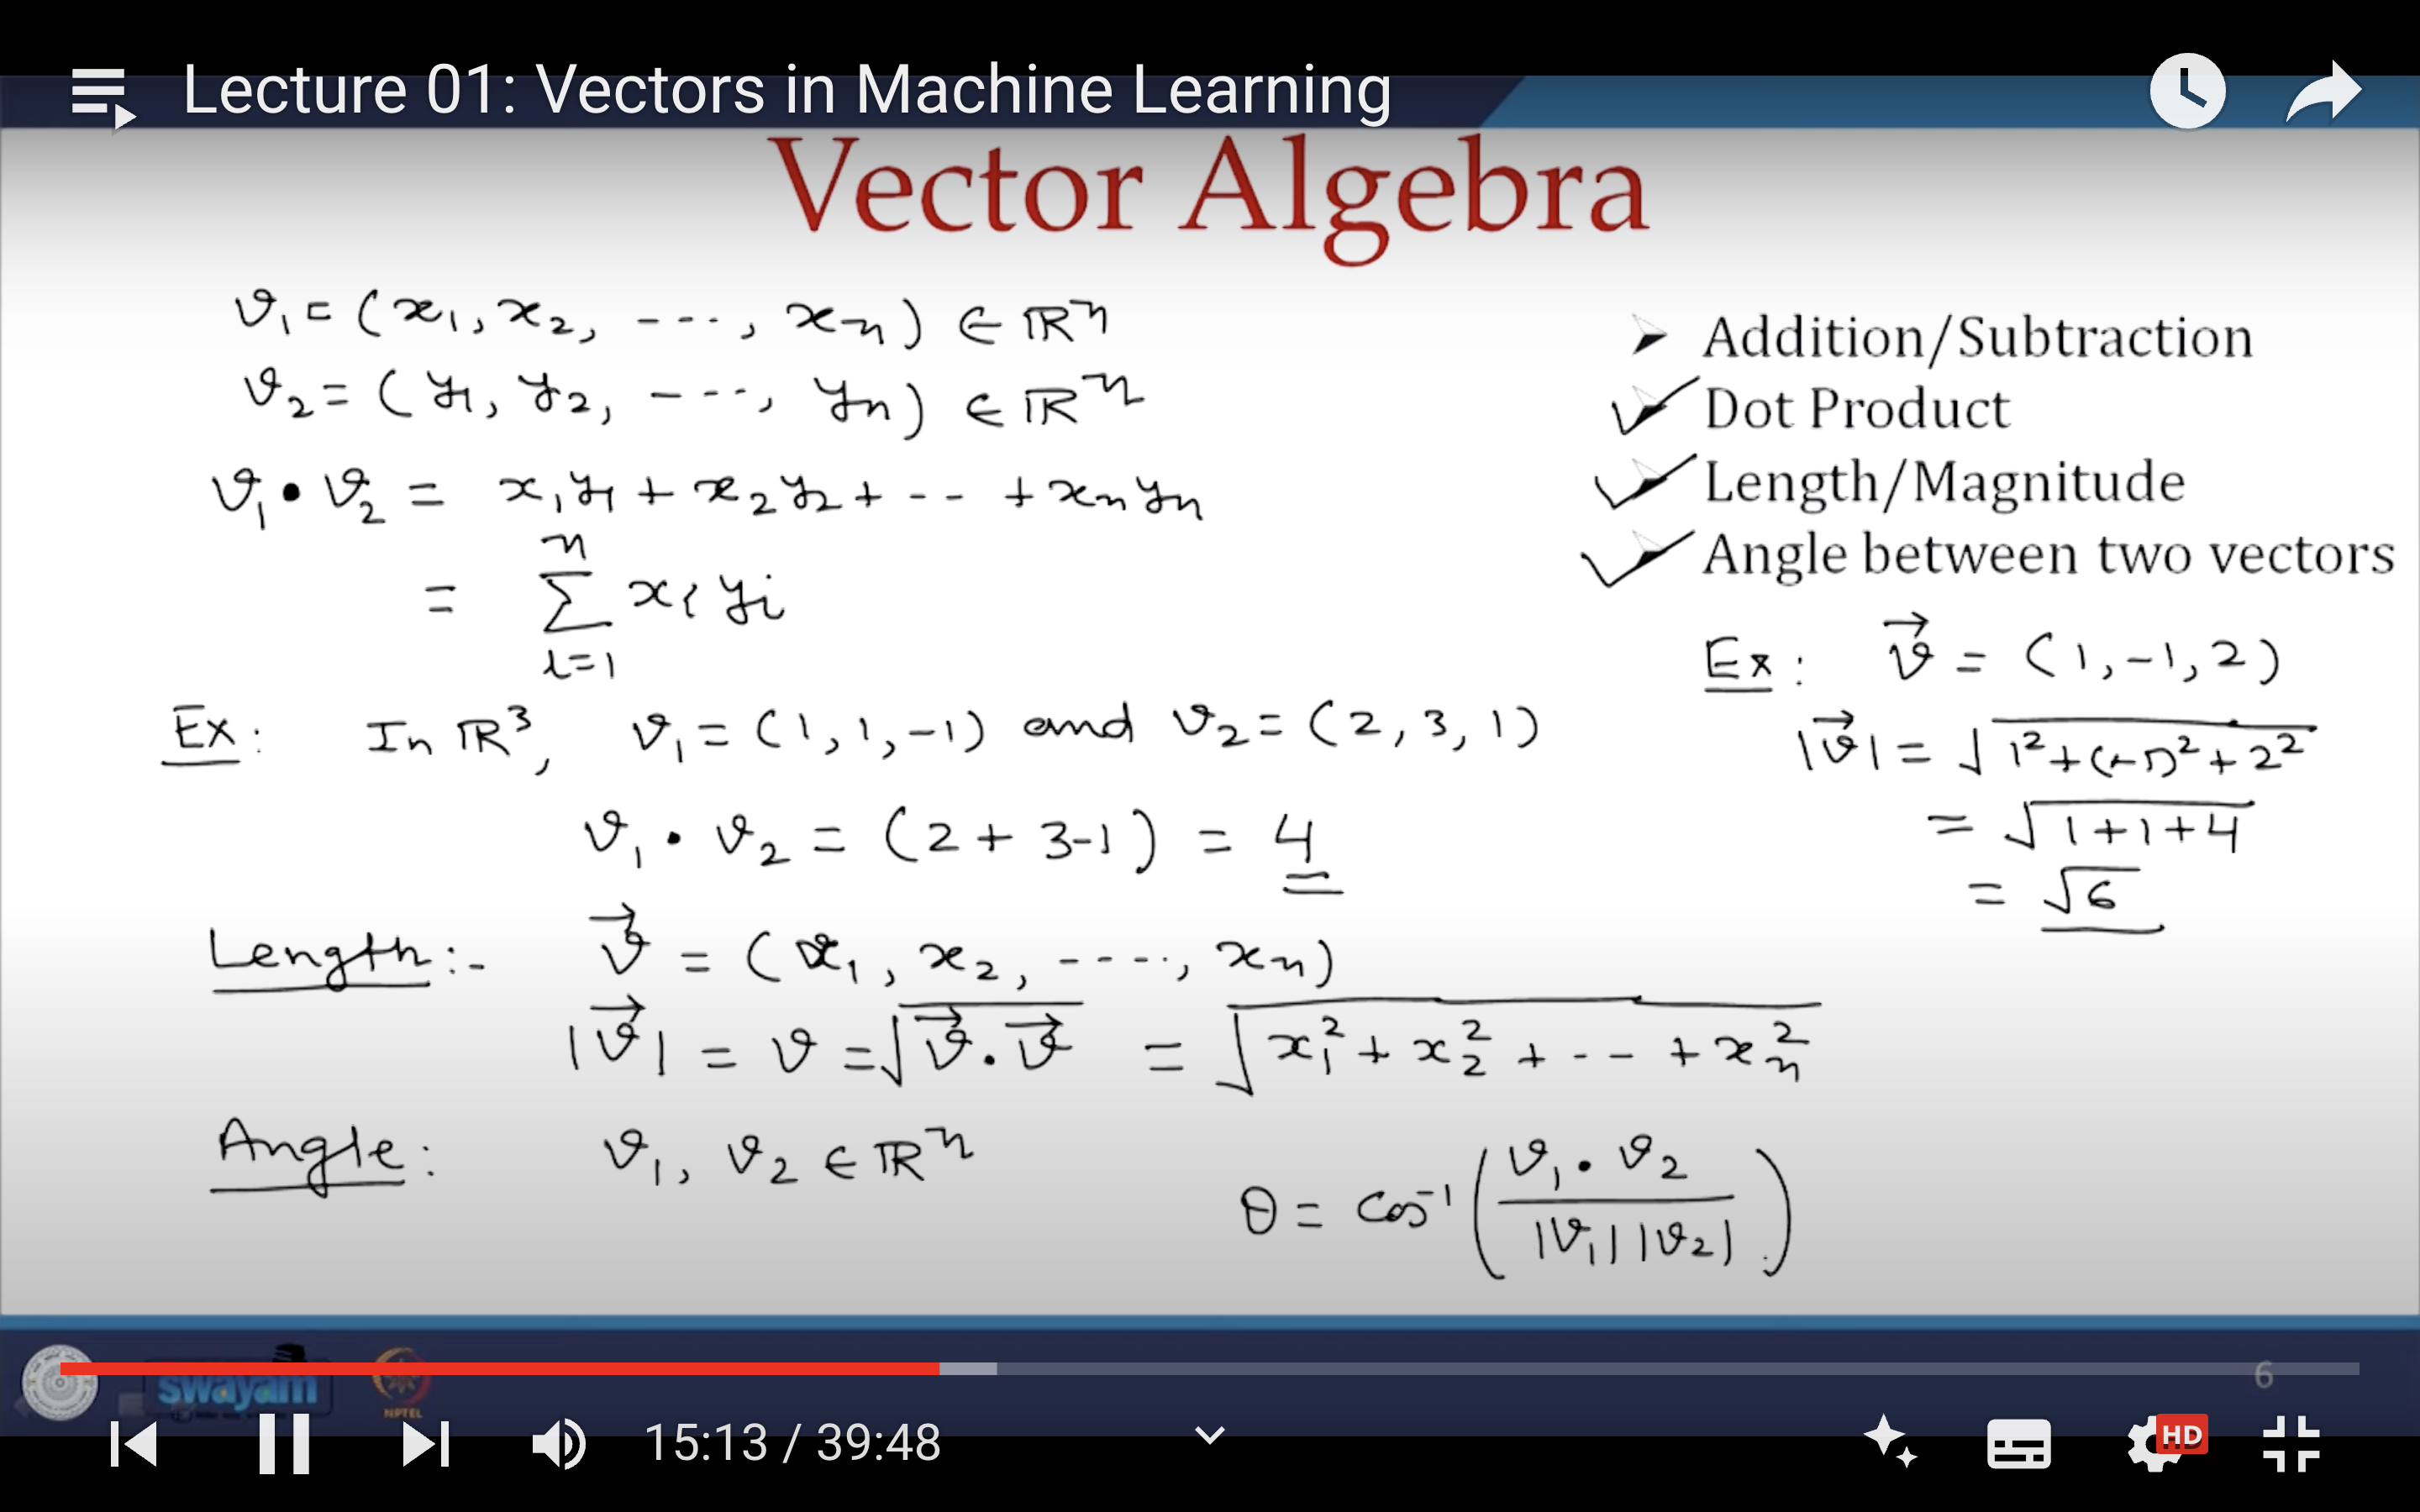 Lecture 01: Vectors in Machine Learning
Vector Algebra
v₁ = (x₁, x₂, ----, xₙ) ∈ ℝⁿ
v₂ = (y₁, y₂, ----, yₙ) ∈ ℝⁿ
v₁ • v₂ = x₁y₁ + x₂y₂ + -- + xₙyₙ
= ∑ⁿᵢ₌₁ xᵢ yᵢ
Ex: In ℝ³, v₁ = (1, 1, -1) and v₂ = (2, 3, 1)
v₁ • v₂ = (2 + 3-1) = 4
Length:- v⃗ = (x₁, x₂, ----, xₙ)
|v⃗| = v = √(v⃗ . v⃗) = √(x₁² + x₂² + -- + xₙ²)
Angle: v₁, v₂ ∈ ℝⁿ
θ = cos⁻¹ (v₁ • v₂ / |v₁| |v₂|)
➢ Addition/Subtraction
✓ Dot Product
✓ Length/Magnitude
✓ Angle between two vectors
Ex: v⃗ = (1, -1, 2)
|v⃗| = √(1² + (-1)² + 2²)
= √(1+1+4)
= √6
swayam
NPTEL
6
15:13 / 39:48
HD